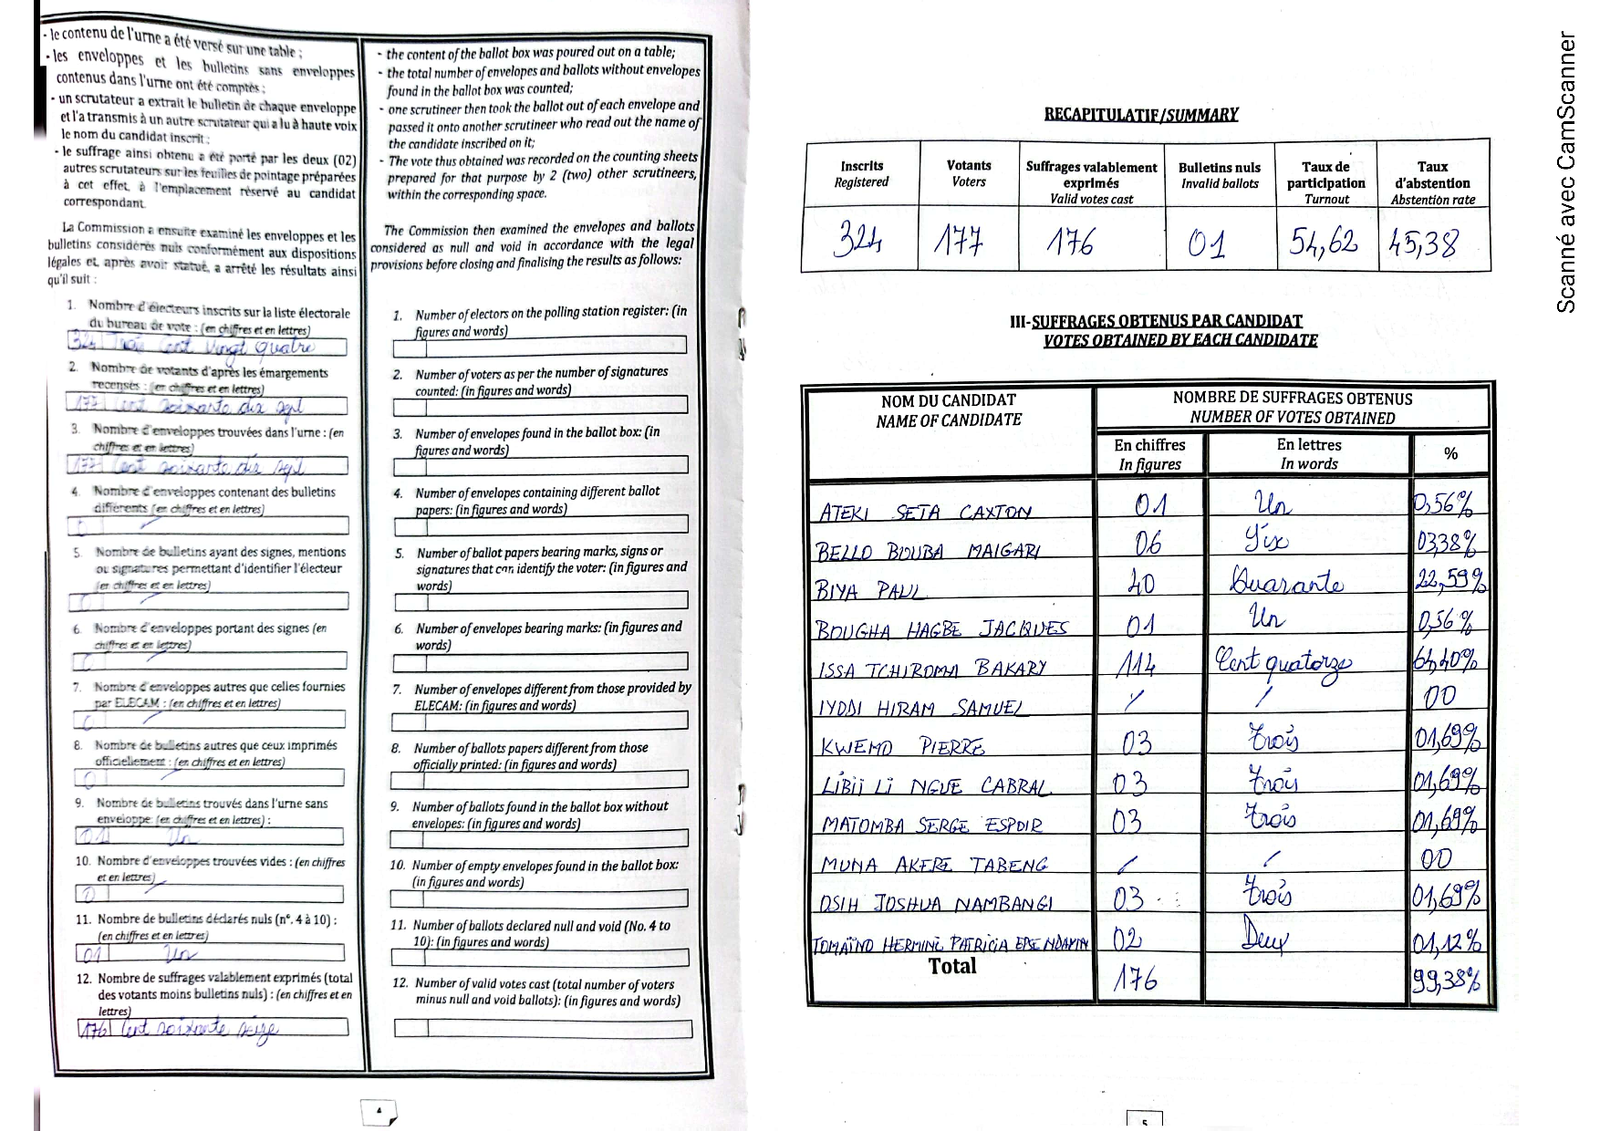 - le contenu de l'urne a été versé sur une table ;
- les enveloppes et les bulletins sans enveloppes
contenus dans l'urne ont été comptés ;
- un scrutateur a extrait le bulletin de chaque enveloppe
et l'a transmis à un autre scrutateur qui a lu à haute voix
le nom du candidat inscrit ;
- le suffrage ainsi obtenu a été porté par les deux (02)
autres scrutateurs sur les feuilles de pointage préparées
à cet effet, à l'emplacement réservé au candidat
correspondant.
La Commission a ensuite examiné les enveloppes et les
bulletins considérés nuls conformément aux dispositions
légales et, après avoir statué, a arrêté les résultats ainsi
qu'il suit :
1. Nombre d'électeurs inscrits sur la liste électorale
du bureau de vote : (en chiffres et en lettres)
324 Trois Cent Vingt quatre
2. Nombre de votants d'après les émargements
recensés : (en chiffres et en lettres)
177 Cent soixante dix sept
3. Nombre d'enveloppes trouvées dans l'urne : (en
chiffres et en lettres)
177 Cent soixante dix sept
4. Nombre d'enveloppes contenant des bulletins
différents (en chiffres et en lettres)
0 /
5. Nombre de bulletins ayant des signes, mentions
ou signatures permettant d'identifier l'électeur
(en chiffres et en lettres)
0 /
6. Nombre d'enveloppes portant des signes (en
chiffres et en lettres)
0 /
7. Nombre d'enveloppes autres que celles fournies
par ELECAM : (en chiffres et en lettres)
0 /
8. Nombre de bulletins autres que ceux imprimés
officiellement : (en chiffres et en lettres)
0 /
9. Nombre de bulletins trouvés dans l'urne sans
enveloppe (en chiffres et en lettres) :
01 Un
10. Nombre d'enveloppes trouvées vides : (en chiffres
et en lettres)
0 /
11. Nombre de bulletins déclarés nuls (n°. 4 à 10) :
(en chiffres et en lettres)
01 Un
12. Nombre de suffrages valablement exprimés (total
des votants moins bulletins nuls) : (en chiffres et en
lettres)
176 Cent soixante seize
- the content of the ballot box was poured out on a table;
- the total number of envelopes and ballots without envelopes
found in the ballot box was counted;
- one scrutineer then took the ballot out of each envelope and
passed it onto another scrutineer who read out the name of
the candidate inscribed on it;
- The vote thus obtained was recorded on the counting sheets
prepared for that purpose by 2 (two) other scrutineers,
within the corresponding space.
The Commission then examined the envelopes and ballots
considered as null and void in accordance with the legal
provisions before closing and finalising the results as follows:
1. Number of electors on the polling station register: (in
figures and words)
2. Number of voters as per the number of signatures
counted: (in figures and words)
3. Number of envelopes found in the ballot box: (in
figures and words)
4. Number of envelopes containing different ballot
papers: (in figures and words)
5. Number of ballot papers bearing marks, signs or
signatures that can identify the voter: (in figures and
words)
6. Number of envelopes bearing marks: (in figures and
words)
7. Number of envelopes different from those provided by
ELECAM: (in figures and words)
8. Number of ballots papers different from those
officially printed: (in figures and words)
9. Number of ballots found in the ballot box without
envelopes: (in figures and words)
10. Number of empty envelopes found in the ballot box:
(in figures and words)
11. Number of ballots declared null and void (No. 4 to
10): (in figures and words)
12. Number of valid votes cast (total number of voters
minus null and void ballots): (in figures and words)
4
RECAPITULATIF/SUMMARY
Inscrits Registered | Votants Voters | Suffrages valablement exprimés Valid votes cast | Bulletins nuls Invalid ballots | Taux de participation Turnout | Taux d'abstention Abstention rate
324 177 176 01 54,62 45,38
III-SUFFRAGES OBTENUS PAR CANDIDAT
VOTES OBTAINED BY EACH CANDIDATE
NOM DU CANDIDAT
NAME OF CANDIDATE
NOMBRE DE SUFFRAGES OBTENUS
NUMBER OF VOTES OBTAINED
En chiffres En lettres %
In figures In words
ATEKI SETA CAXTON 01 Un 0,56%
BELLO BOUBA MAIGARI 06 Six 03,38%
BIYA PAUL 40 Quarante 22,59%
BOUGHA HAGBE JACQUES 01 Un 0,56%
ISSA TCHIROMA BAKARY 114 Cent quatorze 64,40%
IYODI HIRAM SAMUEL / / 00
KWEMO PIERRE 03 Trois 01,69%
LIBII LI NGUE CABRAL 03 Trois 01,69%
MATOMBA SERGE ESPOIR 03 Trois 01,69%
MUNA AKERE TABENG / / 00
OSIH JOSHUA NAMBANGI 03 Trois 01,69%
TOMAÏNO HERMINE PATRICIA EPSE NDAMIN 02 Deux 01,12%
Total 176 99,38%
5
Scanné avec CamScanner